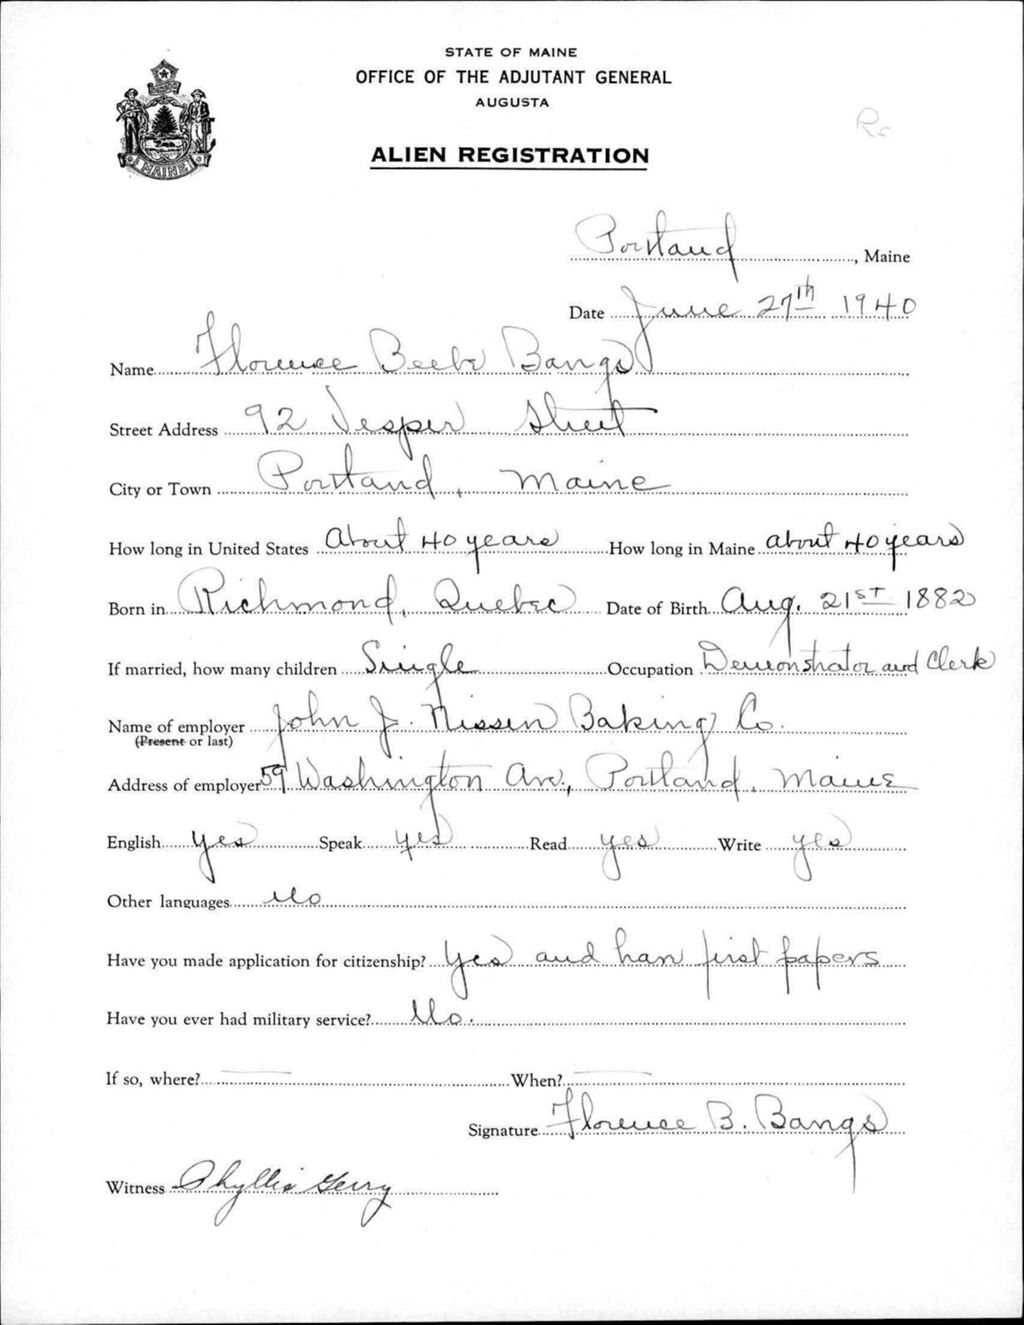 STATE OF MAINE
OFFICE OF THE ADJUTANT GENERAL
AUGUSTA
ALIEN REGISTRATION
MAINE
Portland, Maine
Date June 27th 1940
Name Florence Beebe Bangs
Street Address 92 Vesper Street
City or Town Portland, Maine
How long in United States About 40 years How long in Maine about 40 years
Born in Richmond, Quebec Date of Birth Aug. 21st 1882
If married, how many children Single Occupation Demonstrator and Clerk
Name of employer John J. Nissen Baking Co.
(Present or last)
Address of employer 59 Washington Ave., Portland, Maine
English yes Speak yes Read yes Write yes
Other languages No
Have you made application for citizenship? Yes and have first papers
Have you ever had military service? No.
If so, where? When?
Signature Florence B. Bangs
Witness Phyllis Gerry